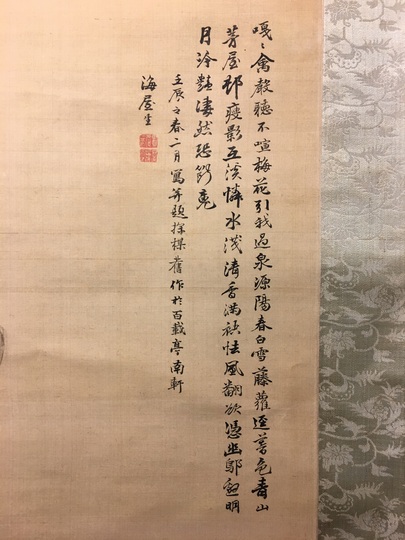 嘎〻禽聲聽不喧梅花引我過泉源陽春白雪藤蘿逕暮色青山
茅屋邨瘦影互溪憐水淺清香滿袂怯風翻欲憑幽明
月冷艷凄然恐魂
壬辰之春二月寫并題探楳舊作於百載亭南軒
海屋生